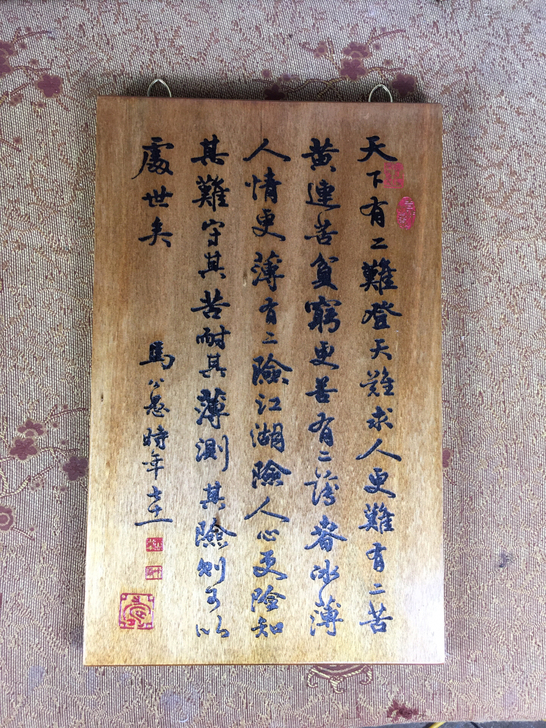 天下有二難登天難求人更難有二苦
黄連苦貧窮更苦有二薄春冰薄
人情更薄有二險江湖險人心更險知
其難守其苦耐其薄測其險則可以
處世矣
馬公愚時年七十一